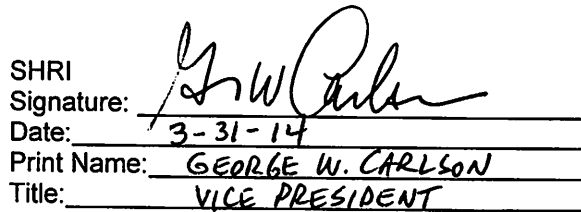 SHRI
Signature: G W Carlson
Date: 3-31-14
Print Name: GEORGE W. CARLSON
Title: VICE PRESIDENT